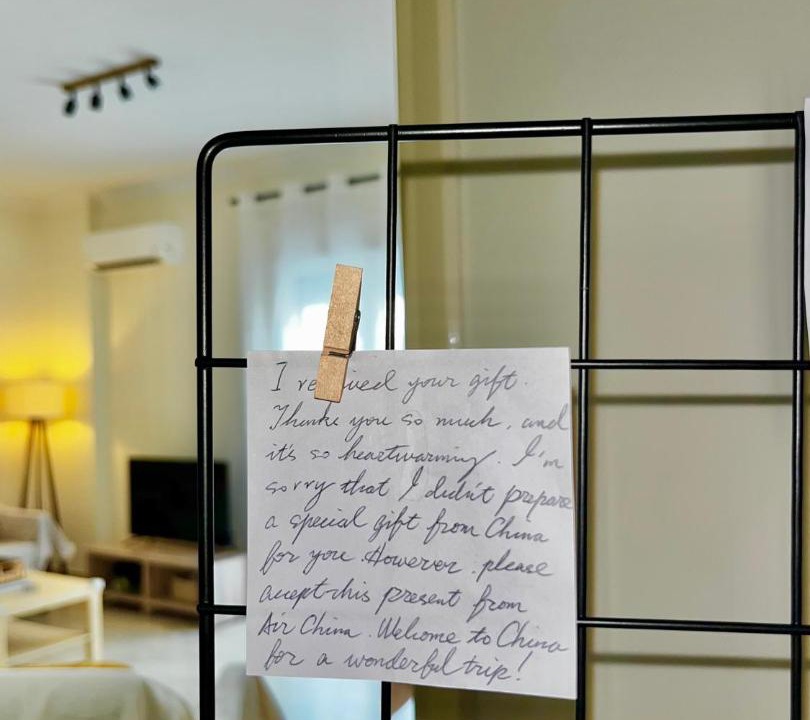 I received your gift.
Thanks you so much, and
it's so heartwarming. I'm
sorry that I didn't prepare
a special gift from China
for you. However, please
accept this present from
Air China. Welcome to China
for a wonderful trip!